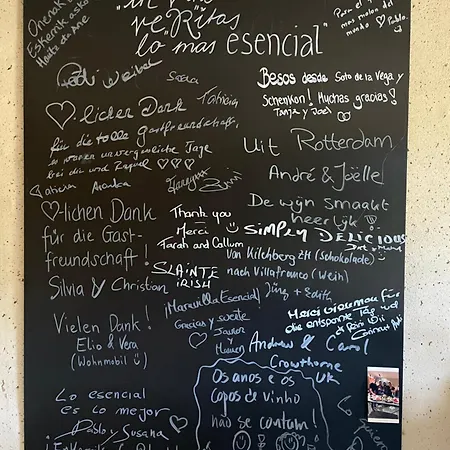 Onenak
Eskerrik asko
"in vino
veRitas
lo mas esencial"
Para el
mas molon del
mundo ♡ Pablo.
Besos desde Soto de la Vega y
Schenkon! Muchas gracias!
Tanja y Joel
♡-lichen Dank
für die tolle Gastfreundschaft,
es waren unvergessliche Tage
bei dir und Raquel ♡♡♡
Patricia
Uit Rotterdam
André & Joëlle
De wijn smaakt
heerlijk!
♡-lichen Dank
für die Gast-
freundschaft!
Silvia y Christian
Thank you
Merci
Farah and Callum
SLAINTE
IRISH
SIMPLY DELICIOUS
Von Kilchberg ZH (Schokolade)
nach Villafranca (Wein)
Jürg + Edith
¡Maravilla Esencial!
Gracias y suerte
Javier
y
Merci Granmau für
die entspannte Tag
Vielen Dank!
Elio & Vera
(Wohnmobil ☺)
Andrew & Carol
Crowthorne
UK
Os anos e os
copos de vinho
não se contam!
Lo esencial
es lo mejor
Pablo y Susana